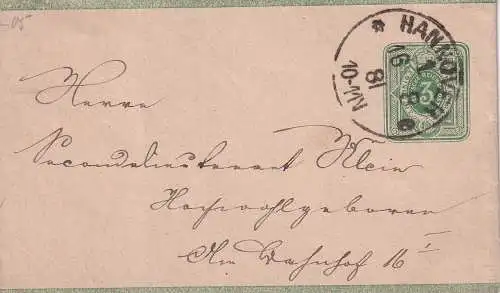 HANNOVER
16
1
8
81
10-11V
3
Herrn
Secondelieutenant Klein
Hochwohlgeboren
Am Bahnhof 16 I